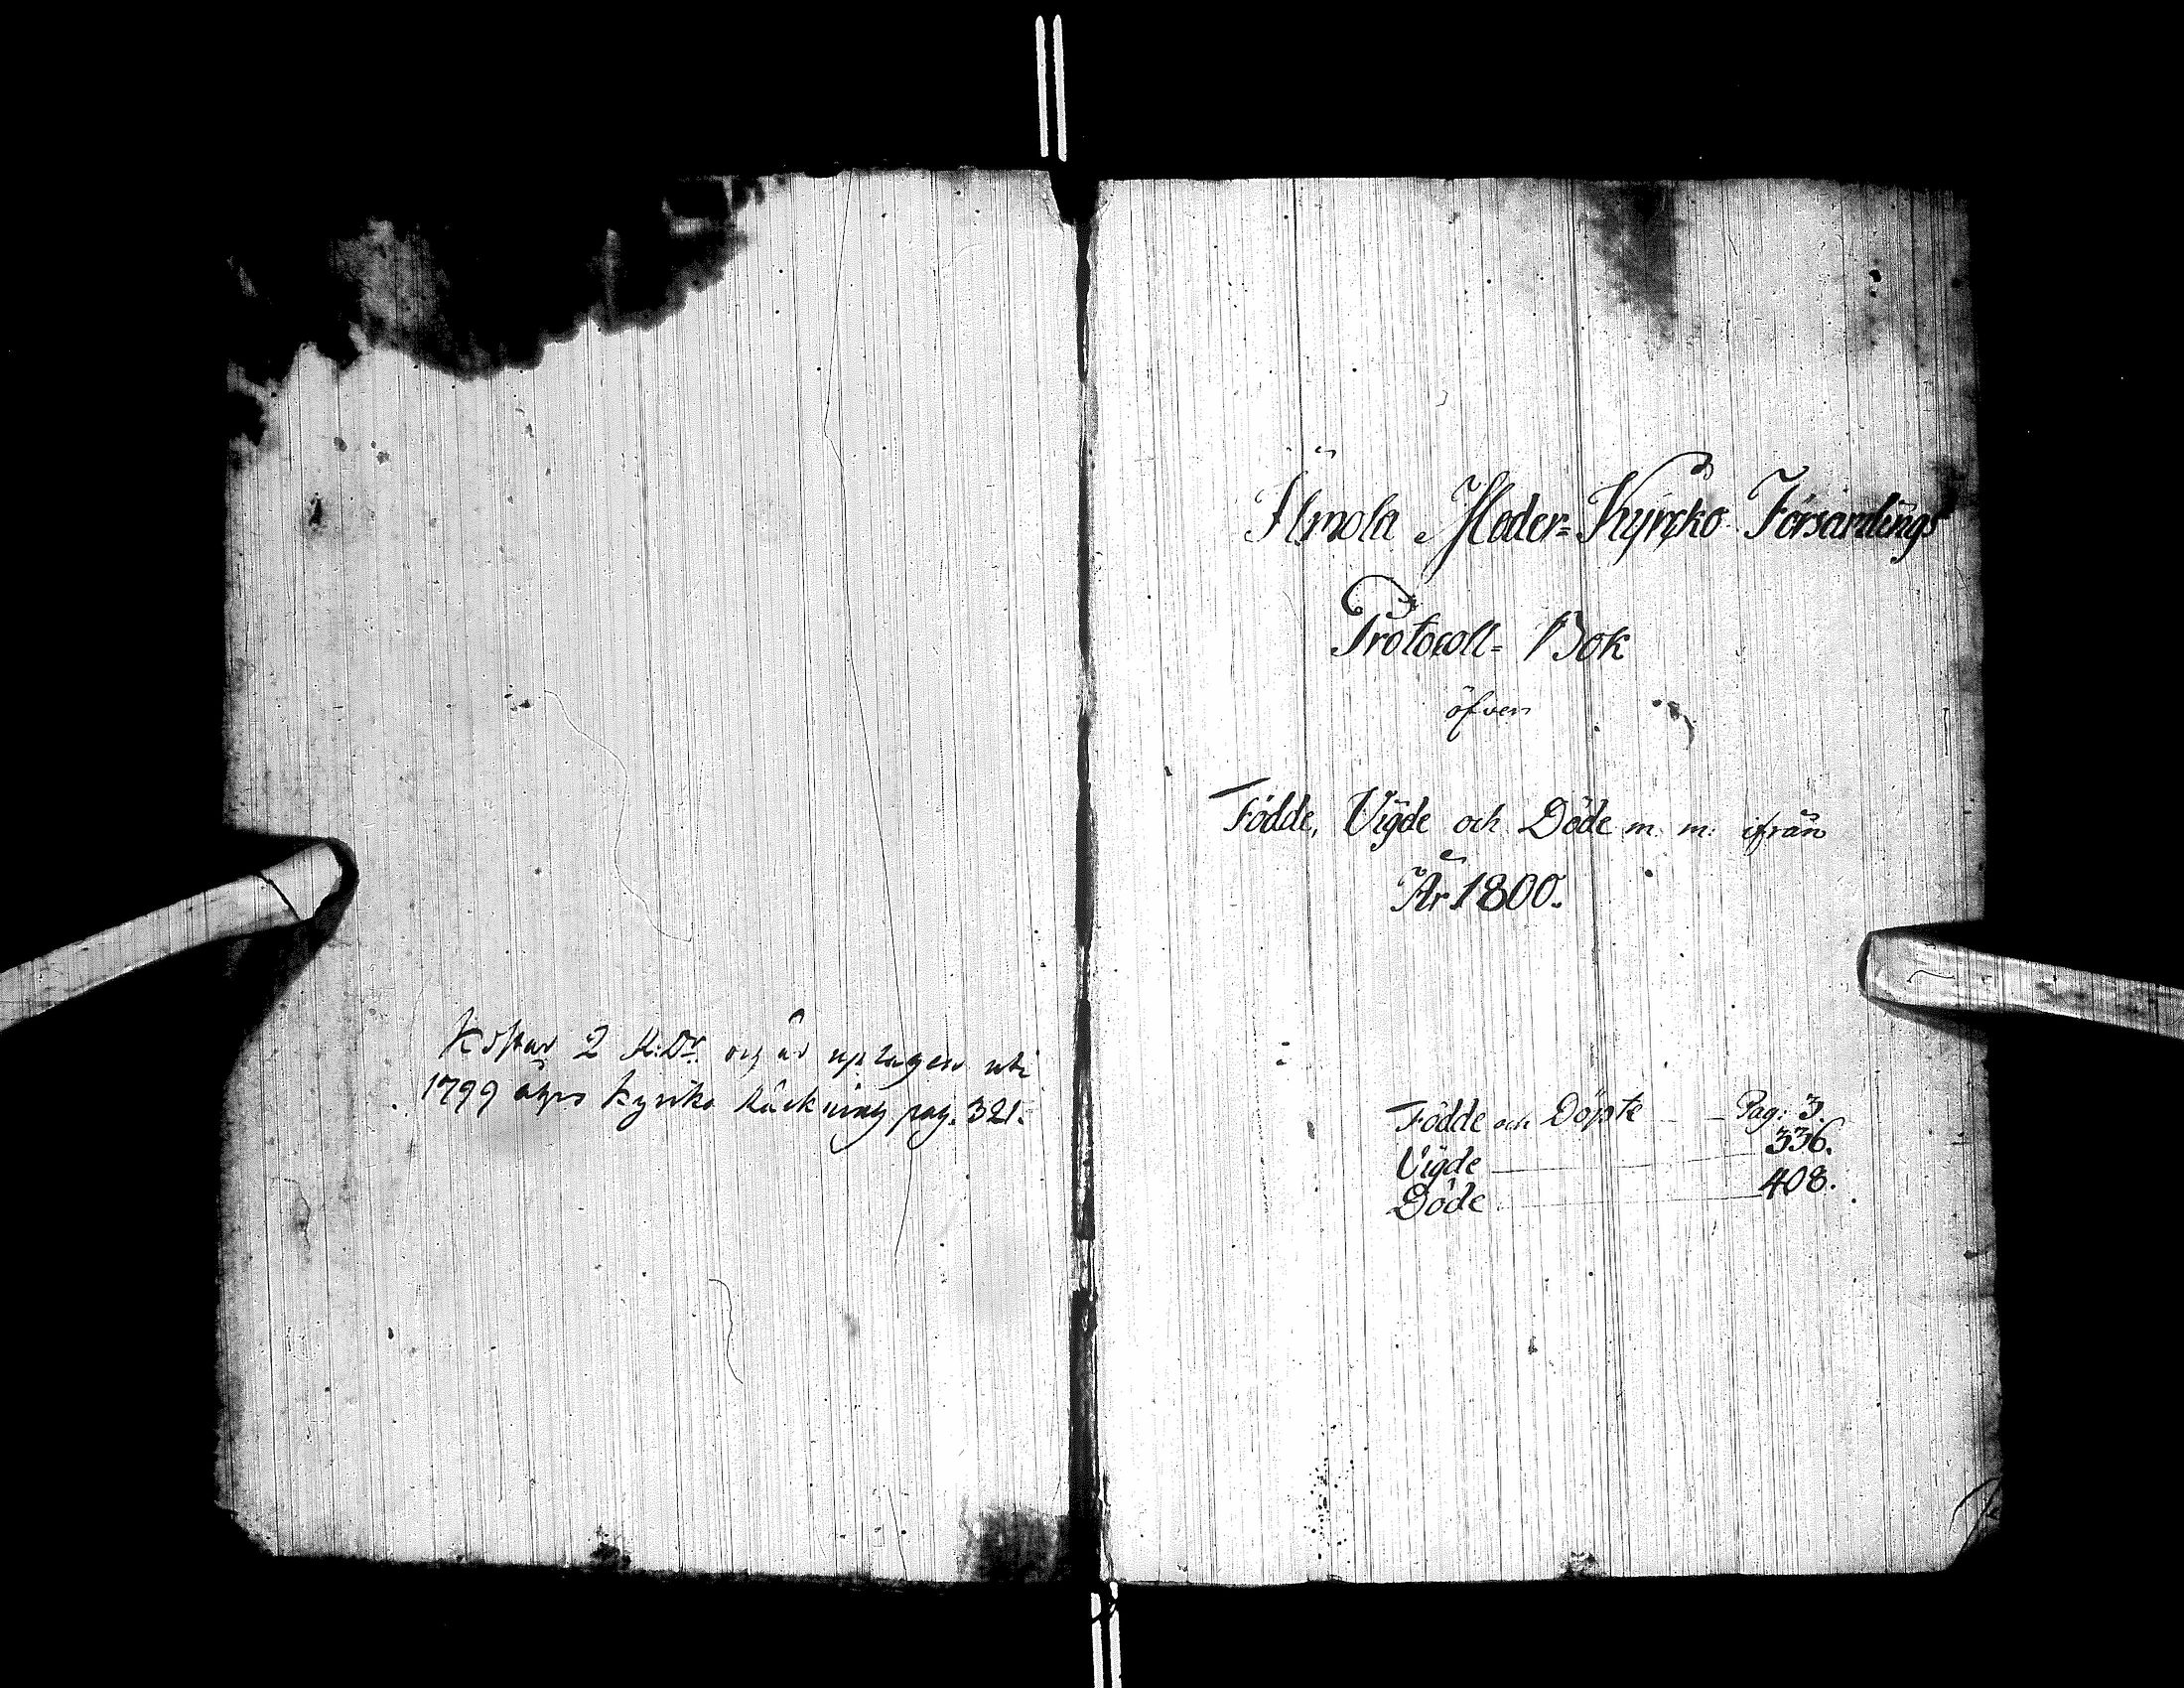 Kostar 2 R:Dr. och är uptagen uti
1799 åhrs kyrko Räckning pag. 321.
Ilmola Moder=Kyrcko Församlings
Protocoll= Bok
öfver
Födde, Vigde och Döde m. m: ifrån
År 1800.
Födde och Döpte — Pag: 3.
Vigde — 336.
Döde — 408.